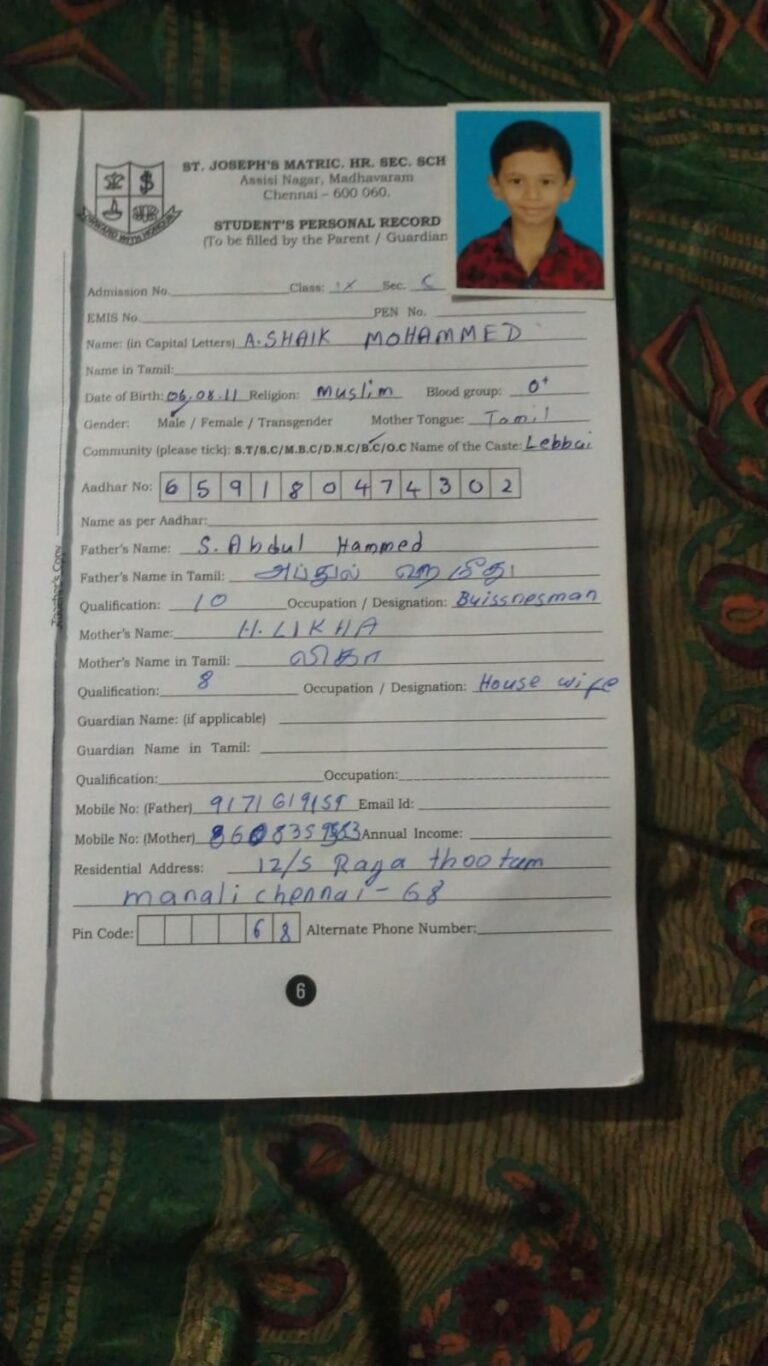 ST. JOSEPH'S MATRIC. HR. SEC. SCH
Assisi Nagar, Madhavaram
Chennai – 600 060.
STUDENT'S PERSONAL RECORD
(To be filled by the Parent / Guardian
Admission No. Class: IX Sec. C
EMIS No. PEN No.
Name: (in Capital Letters) A.SHAIK MOHAMMED
Name in Tamil:
Date of Birth: 06.08.11 Religion: Muslim Blood group: O+
Gender: Male / Female / Transgender Mother Tongue: Tamil
Community (please tick): S.T/S.C/M.B.C/D.N.C/B.C/O.C Name of the Caste: Lebbai
Aadhar No: 6 5 9 1 8 0 4 7 4 3 0 2
Name as per Aadhar:
Father's Name: S. Abdul Hammed
Father's Name in Tamil: அப்துல் ஹமீது
Qualification: 10 Occupation / Designation: Buissnesman
Mother's Name: H. LIKHA
Mother's Name in Tamil: லிகா
Qualification: 8 Occupation / Designation: House wife
Guardian Name: (if applicable)
Guardian Name in Tamil:
Qualification: Occupation:
Mobile No: (Father) Email Id:
Mobile No: (Mother) Annual Income:
Residential Address: 12/5 Raja thootam
manali chennai - 68
Pin Code: 6 8 Alternate Phone Number:
6
Teacher's Copy